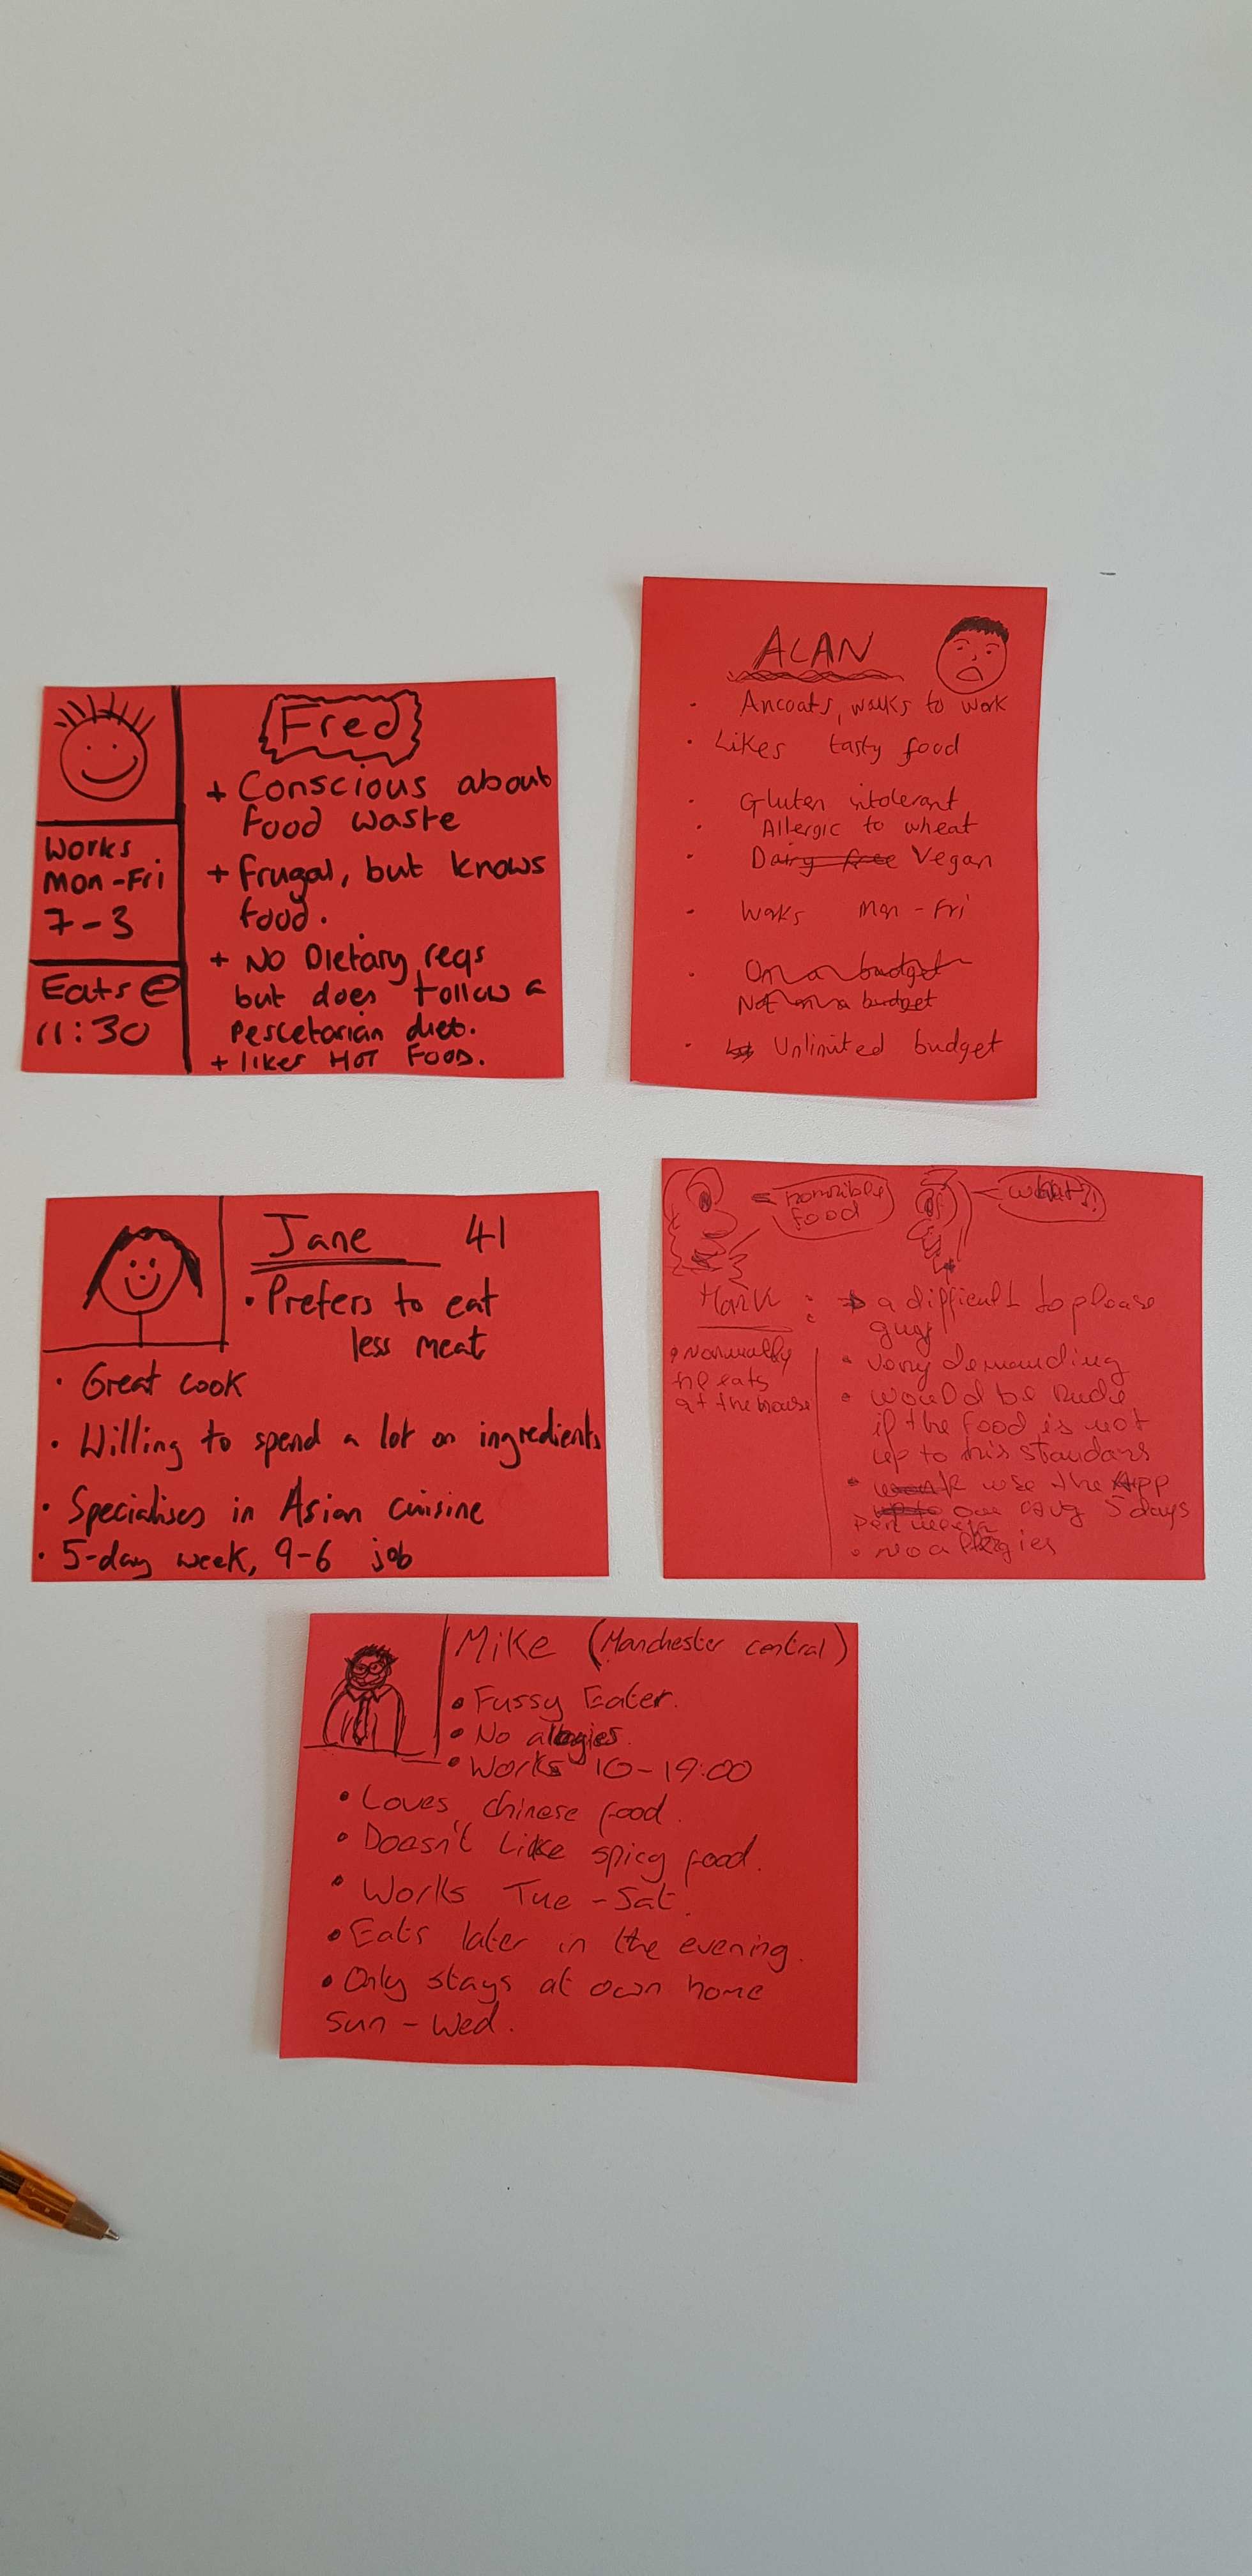 Fred
+ Conscious about
food waste
+ frugal, but knows
food.
+ No Dietary reqs
but does follow a
Pescetarian diet.
+ likes HOT FOOD.
Works
Mon-Fri
7-3
Eats @
11:30
ALAN
· Ancoats, walks to work
· Likes tasty food
· Gluten intolerant
· Allergic to wheat
· Dairy free Vegan
· Works Mon-Fri
· On a budget
Not on a budget
· Unlimited budget
Jane 41
· Prefers to eat
less meat
· Great cook
· Willing to spend a lot on ingredients
· Specialises in Asian cuisine
· 5-day week, 9-6 job
horrible
food
what?!
: a difficult to please
guy
• Normally
he eats
at the house
• very demanding
• would be rude
if the food is not
up to his standars
• use the App
on avg 5 days
per week
• no allergies
Mike (Manchester central)
• Fussy Eater.
• No allergies.
• Works 10-19:00
• Loves chinese food.
• Doesn't Like spicy food.
• Works Tue - Sat.
• Eats later in the evening.
• Only stays at own home
Sun - Wed.